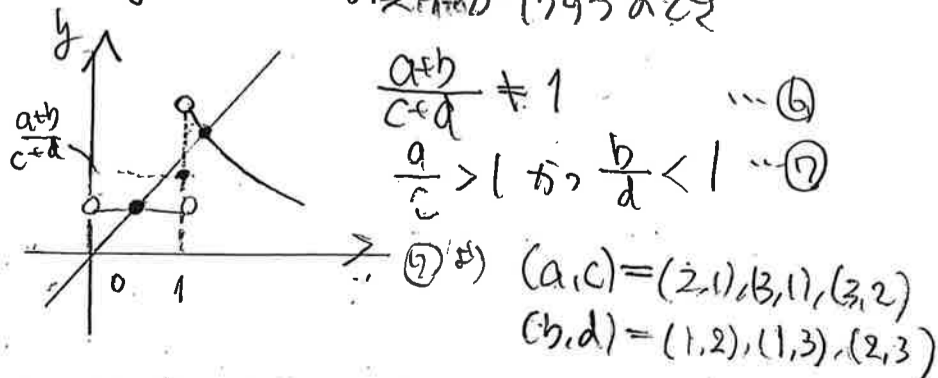 のとき
y
a+b/c+d
0 1
(a+b)/(c+d) ≠ 1 …⑥
a/c > 1 かつ b/d < 1 …⑦
⑦より (a,c)=(2,1),(3,1),(3,2)
(b,d)=(1,2),(1,3),(2,3)